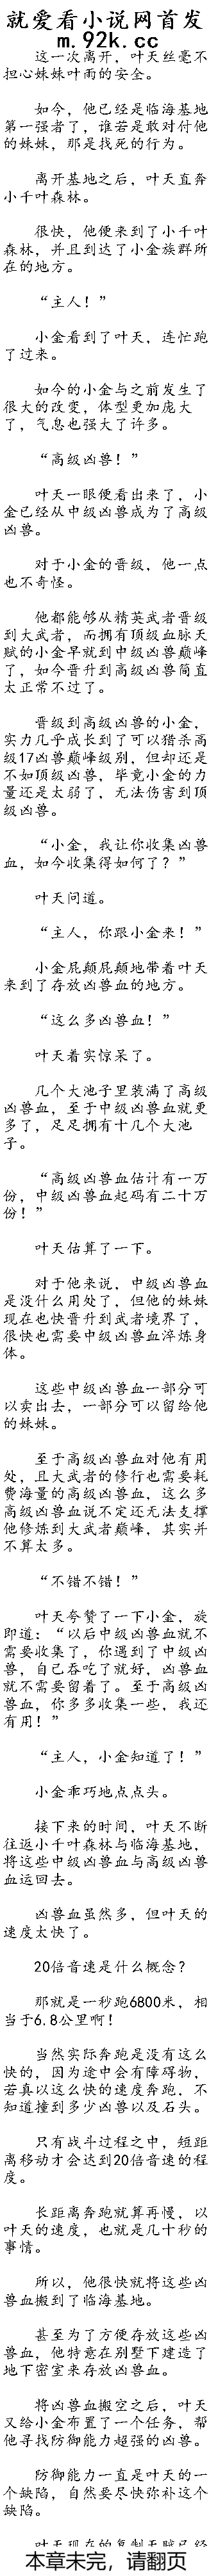 就爱看小说网首发
m.92k.cc
这一次离开，叶天丝毫不
担心妹妹叶雨的安全。
如今，他已经是临海基地
第一强者了，谁若是敢对付他
的妹妹，那是找死的行为。
离开基地之后，叶天直奔
小千叶森林。
很快，他便来到了小千叶
森林，并且到达了小金族群所
在的地方。
“主人！”
小金看到了叶天，连忙跑
了过来。
如今的小金与之前发生了
很大的改变，体型更加庞大
了，气息也强大了许多。
“高级凶兽！”
叶天一眼便看出来了，小
金已经从中级凶兽成为了高级
凶兽。
对于小金的晋级，他一点
也不奇怪。
他都能够从精英武者晋级
到大武者，而拥有顶级血脉天
赋的小金早就到中级凶兽巅峰
了，如今晋升到高级凶兽简直
太正常不过了。
晋级到高级凶兽的小金，
实力几乎成长到了可以猎杀高
级17凶兽巅峰级别，但却还是
不如顶级凶兽，毕竟小金的力
量还是太弱了，无法伤害到顶
级凶兽。
“小金，我让你收集凶兽
血，如今收集得如何了？”
叶天问道。
“主人，你跟小金来！”
小金屁颠屁颠地带着叶天
来到了存放凶兽血的地方。
“这么多凶兽血！”
叶天着实惊呆了。
几个大池子里装满了高级
凶兽血，至于中级凶兽血就更
多了，足足拥有十几个大池
子。
“高级凶兽血估计有一万
份，中级凶兽血起码有二十万
份！”
叶天估算了一下。
对于他来说，中级凶兽血
是没什么用处了，但他的妹妹
现在也快晋升到武者境界了，
很快也需要中级凶兽血淬炼身
体。
这些中级凶兽血一部分可
以卖出去，一部分可以留给他
的妹妹。
至于高级凶兽血对他有用
处，且大武者的修行也需要耗
费海量的高级凶兽血，这么多
高级凶兽血说不定还无法支撑
他修炼到大武者巅峰，其实并
不算太多。
“不错不错！”
叶天夸赞了一下小金，旋
即道：“以后中级凶兽血就不
需要收集了，你遇到了中级凶
兽，自己吞吃了就好，凶兽血
就不需要留着了。至于高级凶
兽血，你多多收集一些，我还
有用！”
“主人，小金知道了！”
小金乖巧地点点头。
接下来的时间，叶天不断
往返小千叶森林与临海基地，
将这些中级凶兽血与高级凶兽
血运回去。
凶兽血虽然多，但叶天的
速度太快了。
20倍音速是什么概念？
那就是一秒跑6800米，相
当于6.8公里啊！
当然实际奔跑是没有这么
快的，因为途中会有障碍物，
若真以这么快的速度奔跑，不
知道撞到多少凶兽以及石头。
只有战斗过程之中，短距
离移动才会达到20倍音速的程
度。
长距离奔跑就算再慢，以
叶天的速度，也就是几十秒的
事情。
所以，他很快就将这些凶
兽血搬到了临海基地。
甚至为了方便存放这些凶
兽血，他特意在别墅下建造了
地下密室来存放凶兽血。
将凶兽血搬空之后，叶天
又给小金布置了一个任务，帮
他寻找防御能力超强的凶兽。
防御能力一直是叶天的一
个缺陷，自然要尽快弥补这个
缺陷。
叶天现在的复制天赋已经
本章未完，请翻页